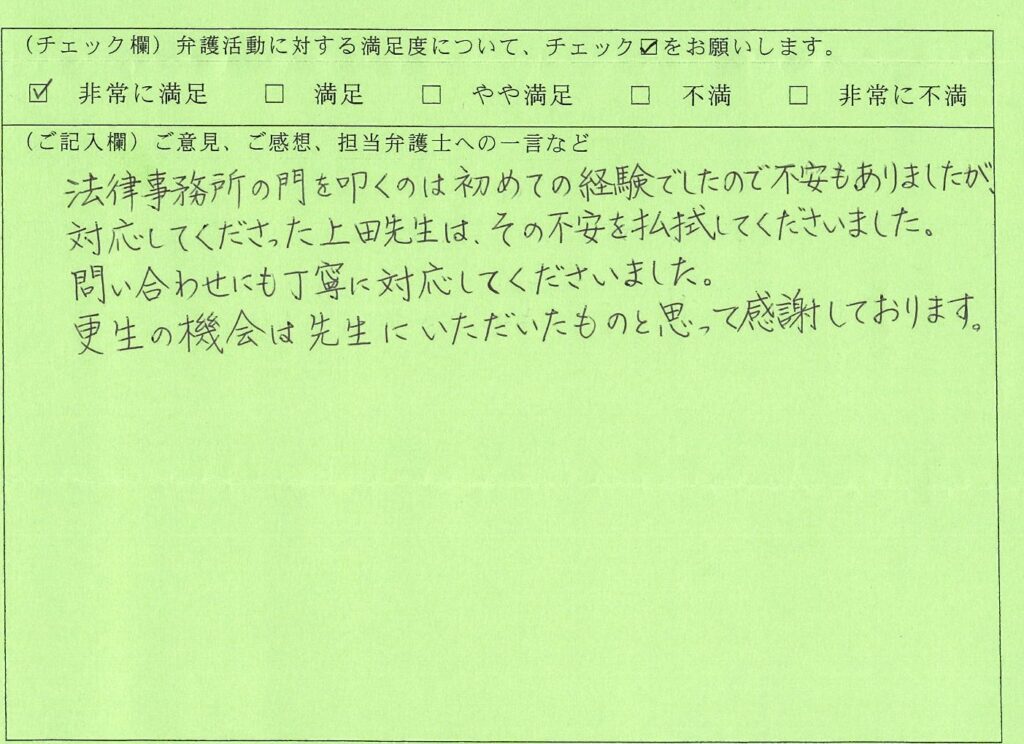 (チェック欄) 弁護活動に対する満足度について、チェック☑をお願いします。
☑ 非常に満足 □ 満足 □ やや満足 □ 不満 □ 非常に不満
(ご記入欄) ご意見、ご感想、担当弁護士への一言など
法律事務所の門を叩くのは初めての経験でしたので不安もありましたが、
対応してくださった上田先生は、その不安を払拭してくださいました。
問い合わせにも丁寧に対応してくださいました。
更生の機会は先生にいただいたものと思って感謝しております。